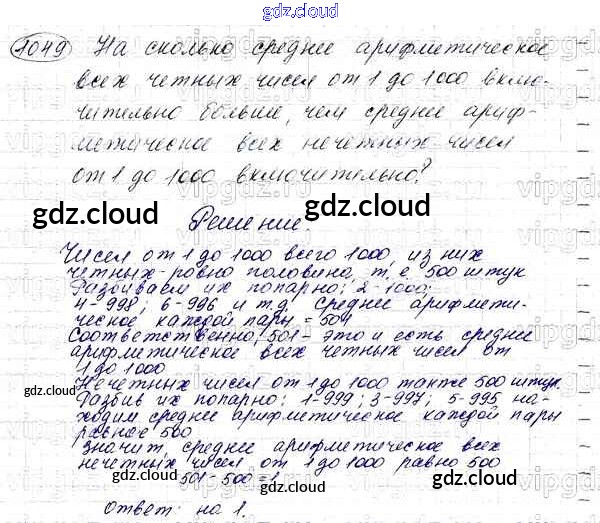 gdz.cloud
1049 На сколько среднее арифметическое
всех четных чисел от 1 до 1000 вклю-
чительно больше, чем среднее ариф-
метическое всех нечетных чисел
от 1 до 1000 включительно?
gdz.cloud gdz.cloud
Решение.
Чисел от 1 до 1000 всего 1000, из них
четных - ровно половина, т. е 500 штук
Разбиваем их попарно: 2-1000;
4-998; 6-996 и т.д. среднее арифмети-
ческое каждой пары = 501
Соответственно, 501 - это и есть среднее
арифметическое всех четных чисел от
1 до 1000
gdz.cloud gdz.cloud
Нечетных чисел от 1 до 1000 также 500 штук.
Разбив их попарно: 1-999; 3-997; 5-995 на-
ходим среднее арифметическое каждой пары
равное 500
Значит, среднее арифметическое всех
нечетных чисел от 1 до 1000 равно 500
501-500=1
gdz.cloud gdz.cloud
Ответ: на 1.
gdz.cloud